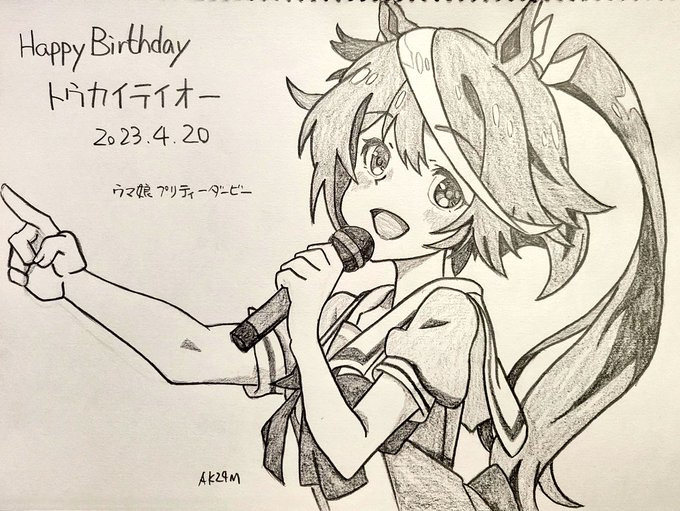 Happy Birthday
トウカイテイオー
2023.4.20
ウマ娘 プリティーダービー
AK24M